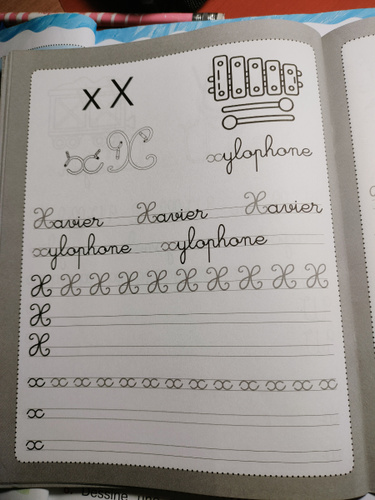 x X
x X
xylophone
Xavier Xavier Xavier
xylophone xylophone
X X X X X X X X X X
X
X
x x x x x x x x x x x x x
x
x
Dessine